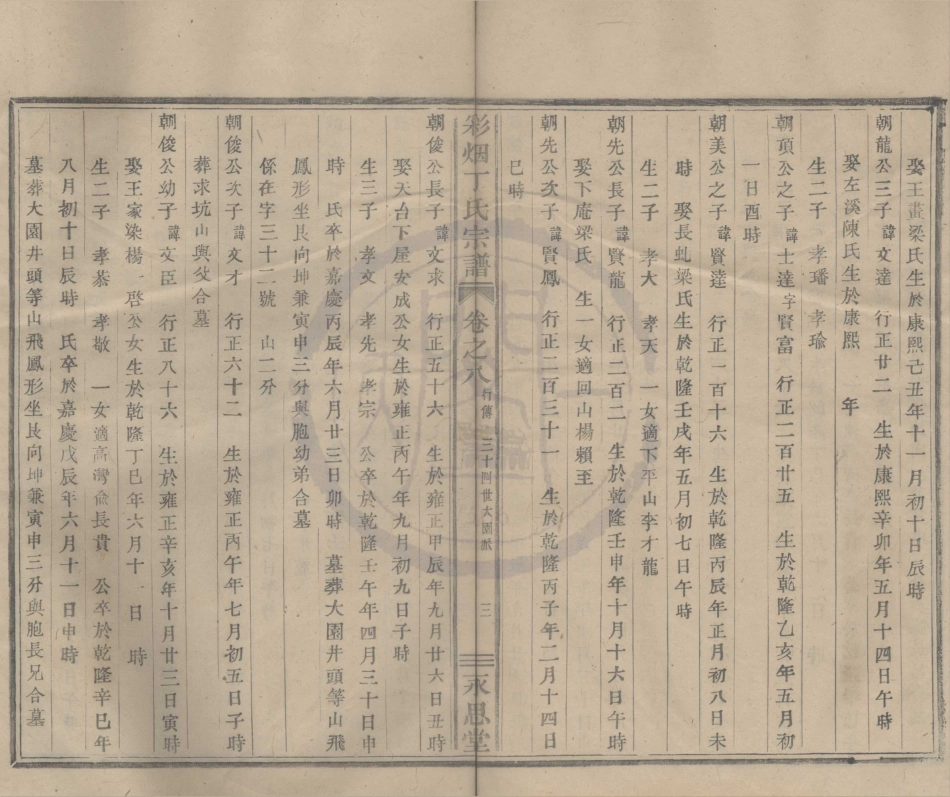 娶王畫梁氏生於康熙己丑年十一月初十日辰時
朝龍公三子諱文達 行正廿二 生於康熙辛卯年五月十四日午時
娶左溪陳氏生於康熙 年
生二子 孝璠 孝瑜
朝頊公之子諱士達字賢富 行正二百廿五 生於乾隆乙亥年五月初
一日酉時
朝美公之子諱賢達 行正一百十六 生於乾隆丙辰年正月初八日未
時 娶長虬梁氏生於乾隆壬戌年五月初七日午時
生二子 孝大 孝天 一女適下平山李才龍
朝先公長子諱賢龍 行正二百二 生於乾隆壬申年十月十六日午時
娶下庵梁氏 生一女適回山楊賴至
朝先公次子諱賢鳳 行正二百三十一 生於乾隆丙子年二月十四日
巳時
彩烟丁氏宗譜 卷之八 行傳 三十四世大園派 三 永思堂
朝俊公長子諱文求 行正五十六 生於雍正甲辰年九月廿六日丑時
娶天台下屋安成公女生於雍正丙午年九月初九日子時
生三子 孝文 孝先 孝宗 公卒於乾隆壬午年四月三十日申
時 氏卒於嘉慶丙辰年六月廿三日卯時 墓葬大園井頭等山飛
鳳形坐艮向坤兼寅申三分與胞幼弟合墓
係在字三十二號 山二分
朝俊公次子諱文才 行正六十二 生於雍正丙午年七月初五日子時
葬求坑山與父合墓
朝俊公幼子諱文臣 行正八十六 生於雍正辛亥年十月廿三日寅時
娶王家染楊一啓公女生於乾隆丁巳年六月十一日 時
生二子 孝恭 孝敬 一女適高灣俞長貴 公卒於乾隆辛巳年
八月初十日辰時 氏卒於嘉慶戊辰年六月十一日申時
墓葬大園井頭等山飛鳳形坐艮向坤兼寅申三分與胞長兄合墓